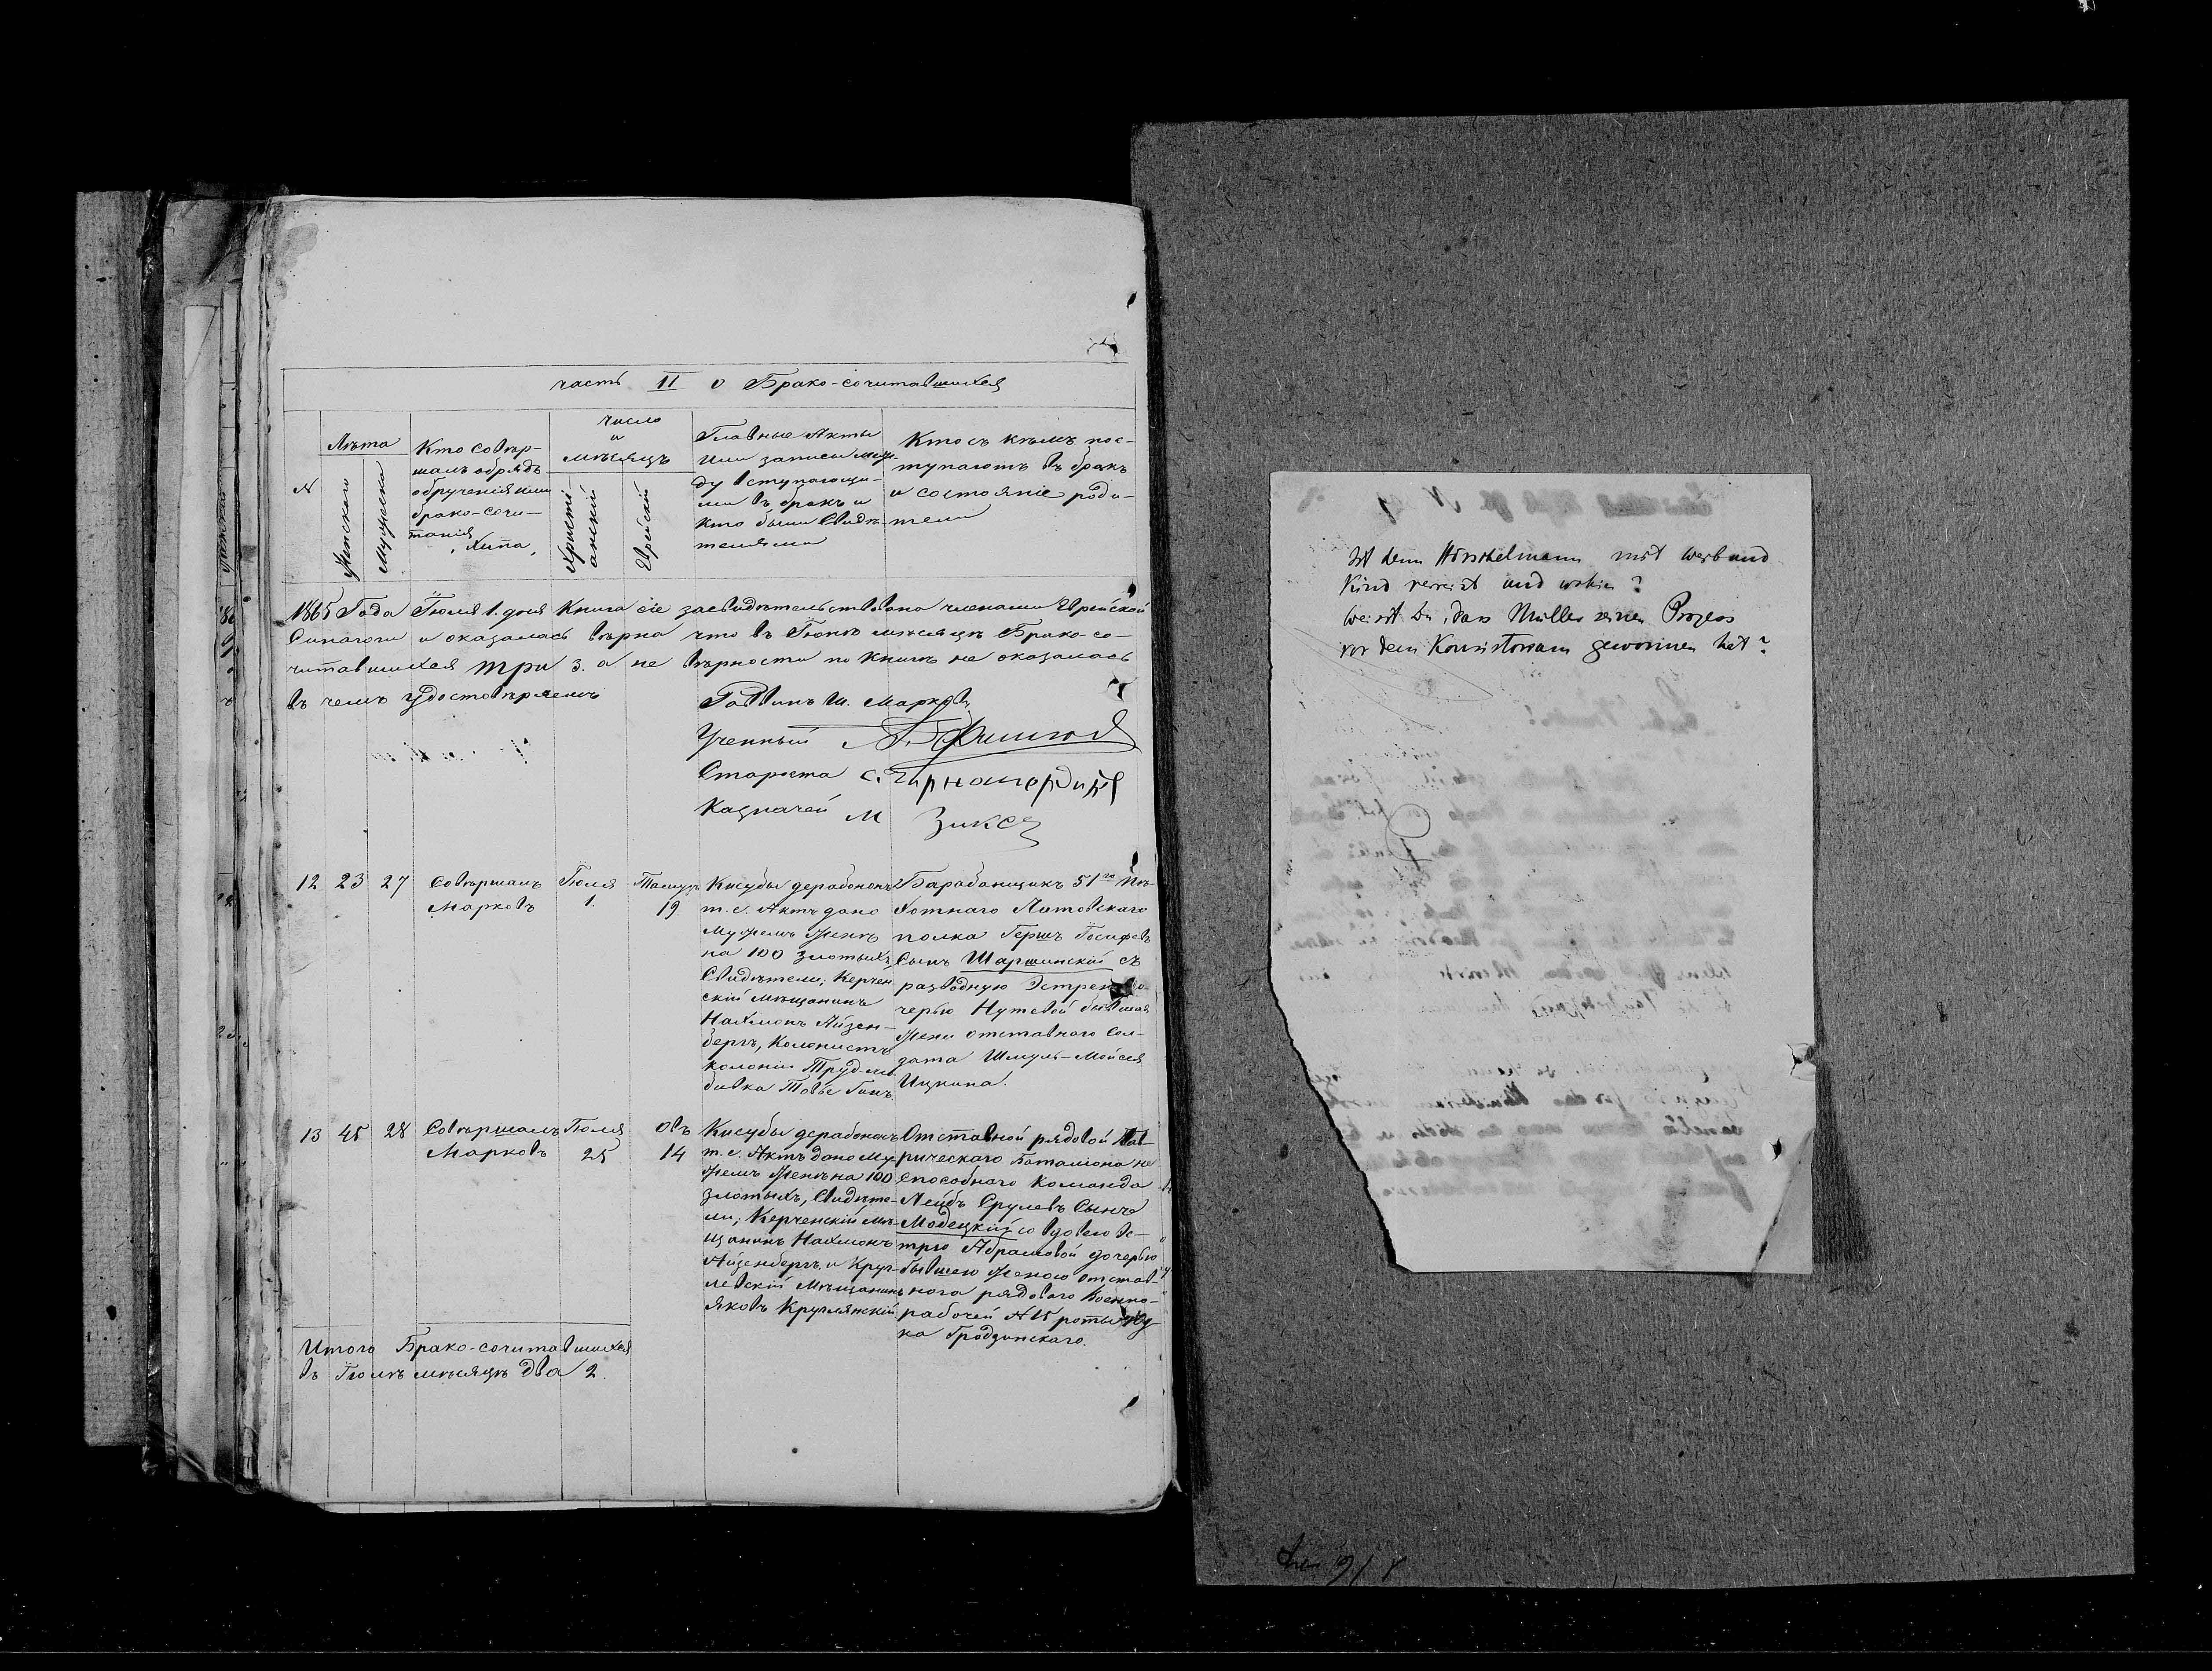 часть II о Брако-сочитавшихся
N
Лѣта
Женского
Мужеска
Кто совѣр-
шалъ обрядъ
обрученія или
брако-сочи-
танія
Хипа,
число
и
мѣсяцъ
Христі-
анскій
Еврейскій
Главные Акты
или записи меж-
ду вступающи-
ми въ бракъ и
кто были Свидѣ-
телями
Кто съ кѣмъ пос-
тупаютъ въ бракъ
и состояніе роди-
тели
1865 Года Іюля 1. дня Книга сіе засвидѣтельствована членами Еврейской
Синагоги и оказалась вѣрна что въ Іюнѣ мѣсяцѣ Брако-со-
читавшихся три 3. а не вѣрности по книгѣ не оказалась
въ чемъ удостовѣряемъ
Раввинъ Ш. Марковъ
Ученый
Староста С.
Казначей М Зиксъ
12 23 27
Совѣршалъ
Марковъ
Іюля
1.
Тамузъ
19
Кисубы дерабонон
т. е. Актъ дано
Мужемъ Женѣ
на 100 злотыхъ,
Свидѣтели; Керчен-
скій Мѣщанинъ
Нахмонъ Айзен-
бергъ, Колонистъ
колоніи Трудлю-
бивка Товье Гинъ
Барабанщикъ 51го Пѣ-
хотнаго Литовскаго
полка Гершъ Іосифовъ
Сынъ Шаршинскій съ
разводную Эстрею до-
черью Нутовой бывшая
Жени отставного Сол-
дата Шмуль-Мойсея
Ицкина.
13 45 28
Совѣршалъ
Марковъ
Іюля
25
Овъ
14
Кисубы дерабонон
т. е. Актъ дано Му-
жемъ Женѣ на 100
злотыхъ, Свидѣте-
ли; Керченскій Мѣ-
щанинъ Нахмонъ
Айзенбергъ и Круг-
левскій Мѣщанинъ
Яковъ Круглянскій
Отставной рядовой Тав-
рическаго Баталіона не
способнаго Команда
Лейбъ Срулевъ Сынъ
Модецкій со вдовою Эс-
трю Абрамовой дочерью
бывшею Женою отстав-
ного рядового Военно-
рабочей N 15 роты
Гродзинскаго.
Итого Брако-сочитавшихся
въ Іюлѣ мѣсяцѣ два 2.
Ist denn Hörschelmann mit Weib und
Kind verreist und wohin?
Weisst Du, dass Müller seinen Prozess
vor dem Konsistorium gewonnen hat?